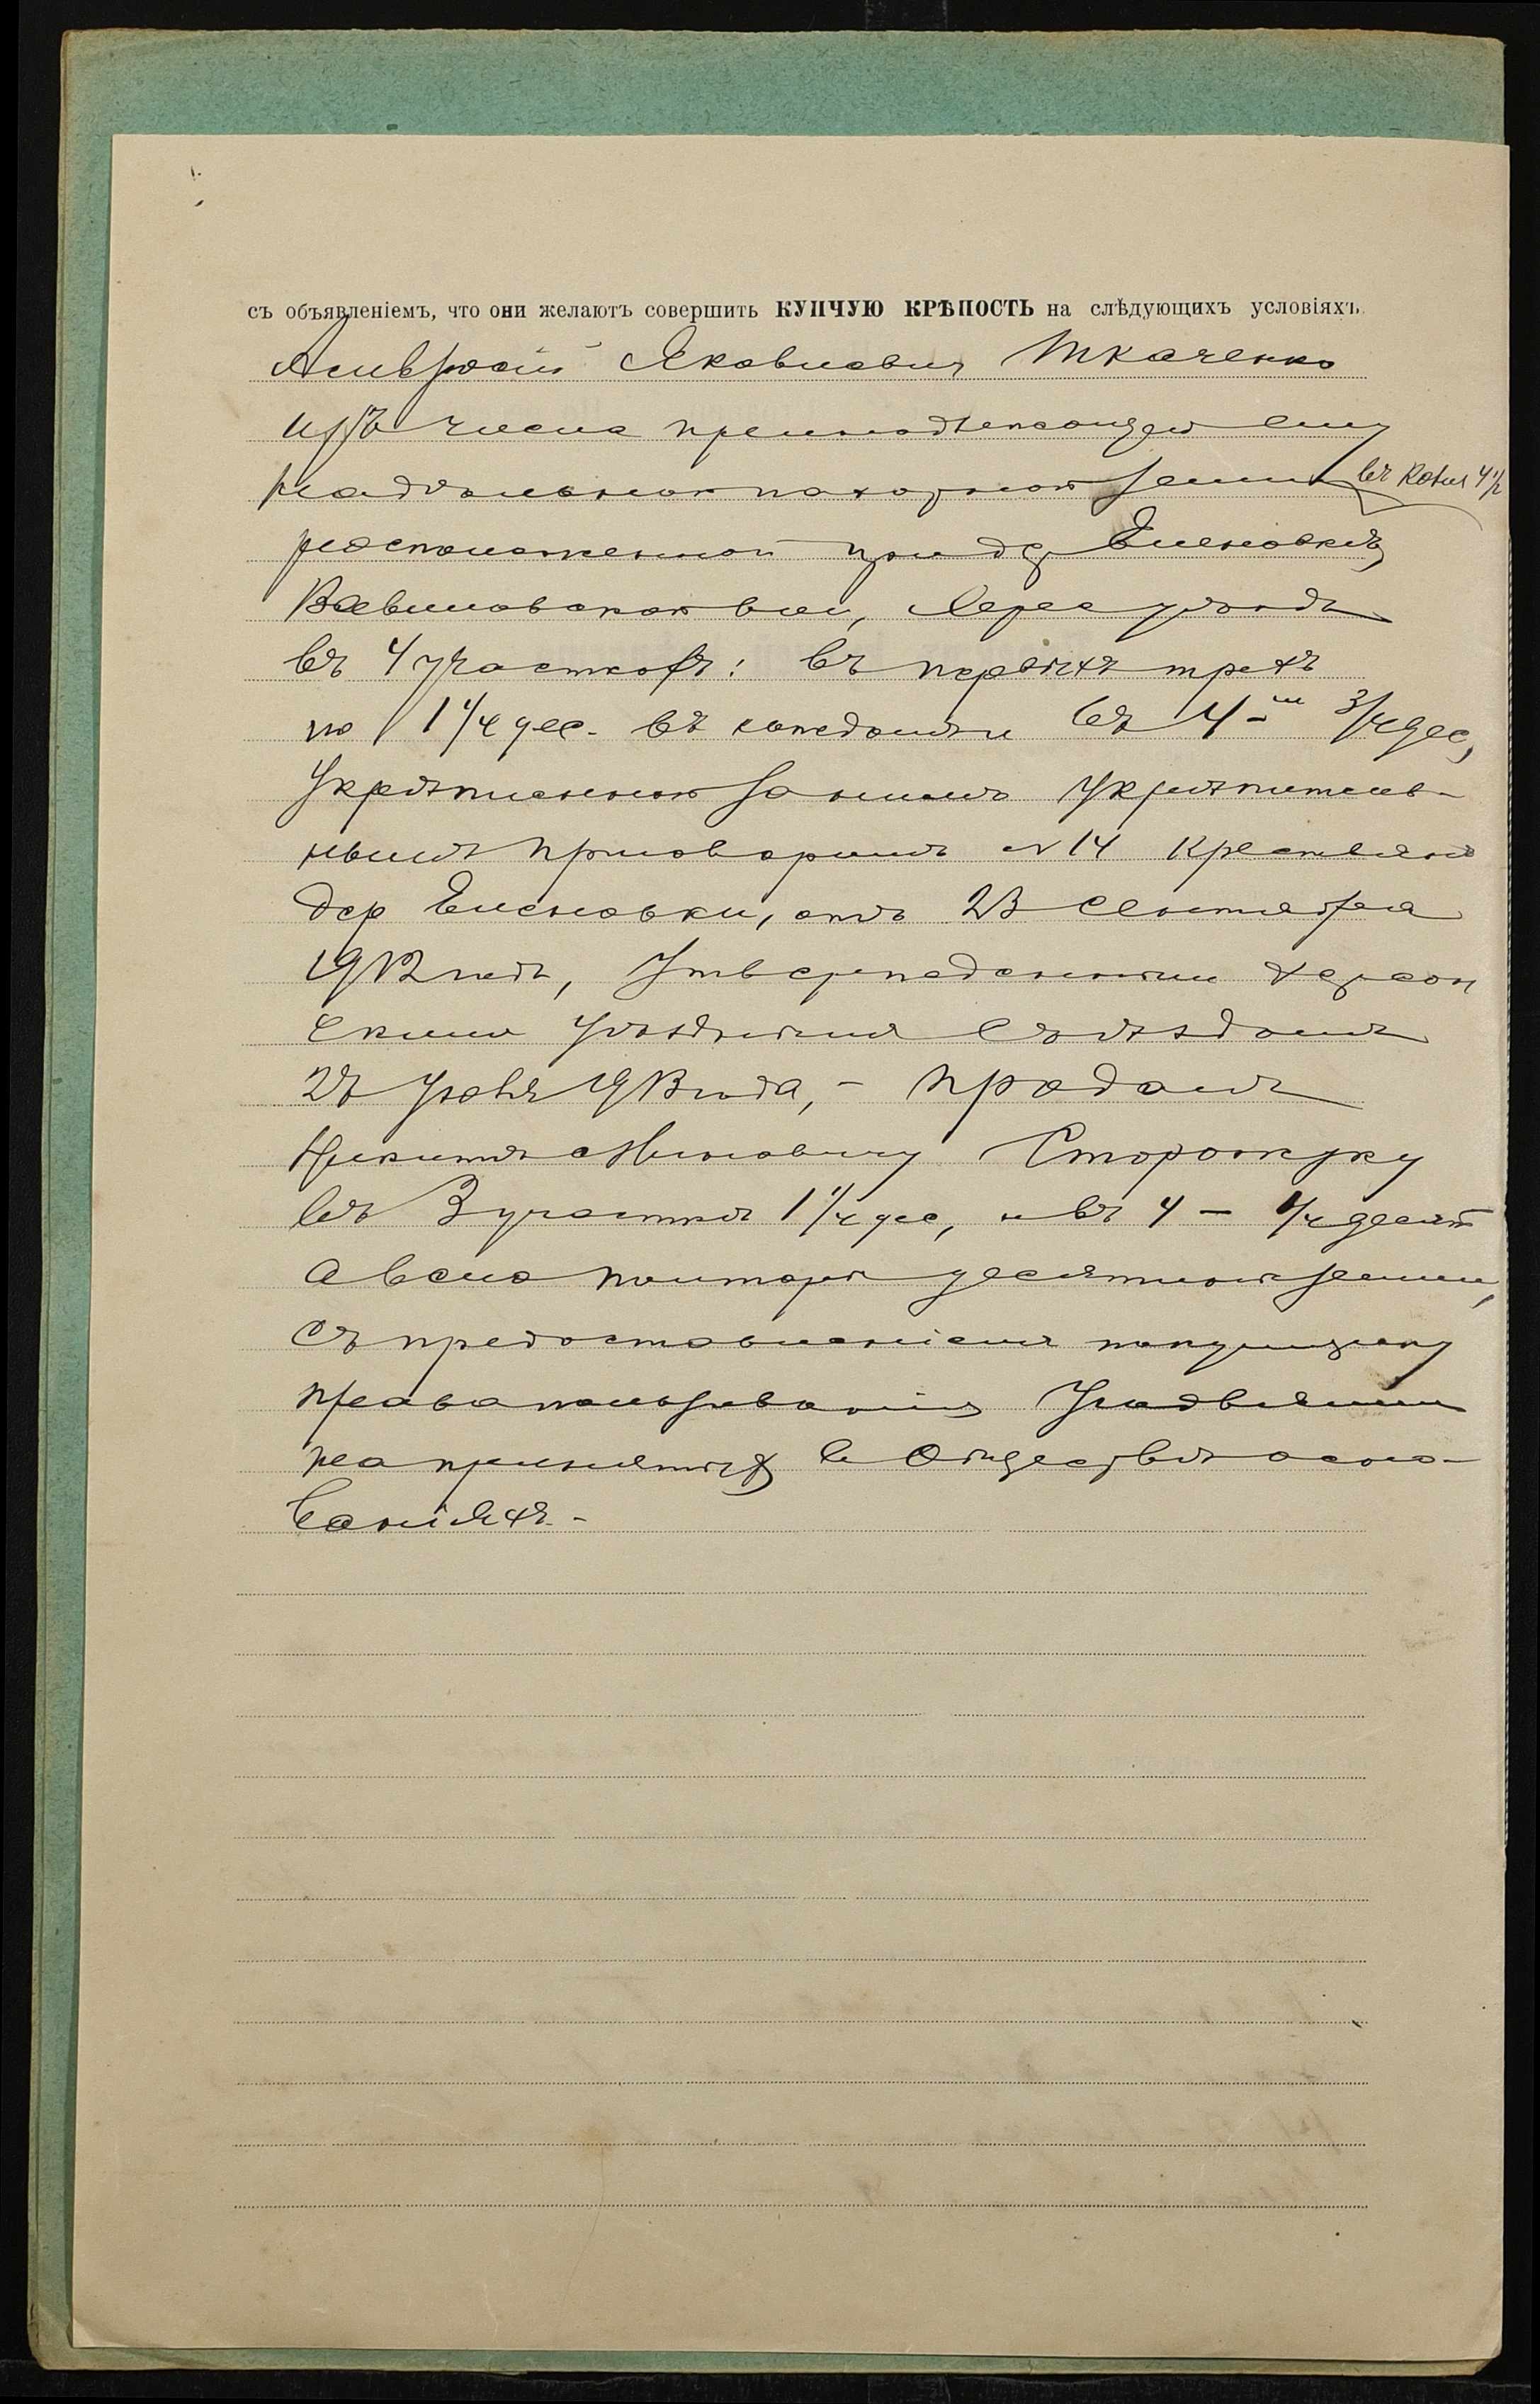 съ объявленіемъ, что они желаютъ совершить КУПЧУЮ КРѢПОСТЬ на слѣдующихъ условіяхъ
Амвросій Яковлевичъ Ткаченко
изъ числа принадлежащей ему
надѣльной пахотной земли въ колич 4 1/2
расположенной при дер Еленовкѣ,
волос, Херс уѣзда
въ 4 участкахъ: въ первыхъ трехъ
по 1 1/4 дес. въ каждомъ и въ 4-мъ 3/4 дес,
Укрѣпленной за нимъ Укрѣпитель-
нымъ приговоромъ № 14 крестьянъ
дер Еленовки, отъ 23 Сентября
1912 года, Утвержденнымъ Херсон
скимъ Уѣзднымъ Съѣздомъ
Іюня 1913 года, - продалъ
Никитѣ Сторожуку
въ 3 участкѣ 1 1/4 дес, и въ 4 - 1/4 десят
а всего полторы десятины земли,
съ предоставленіемъ покупщику
права пользованія Угодьями
на принятыхъ въ Обществѣ осно-
ваніяхъ. -